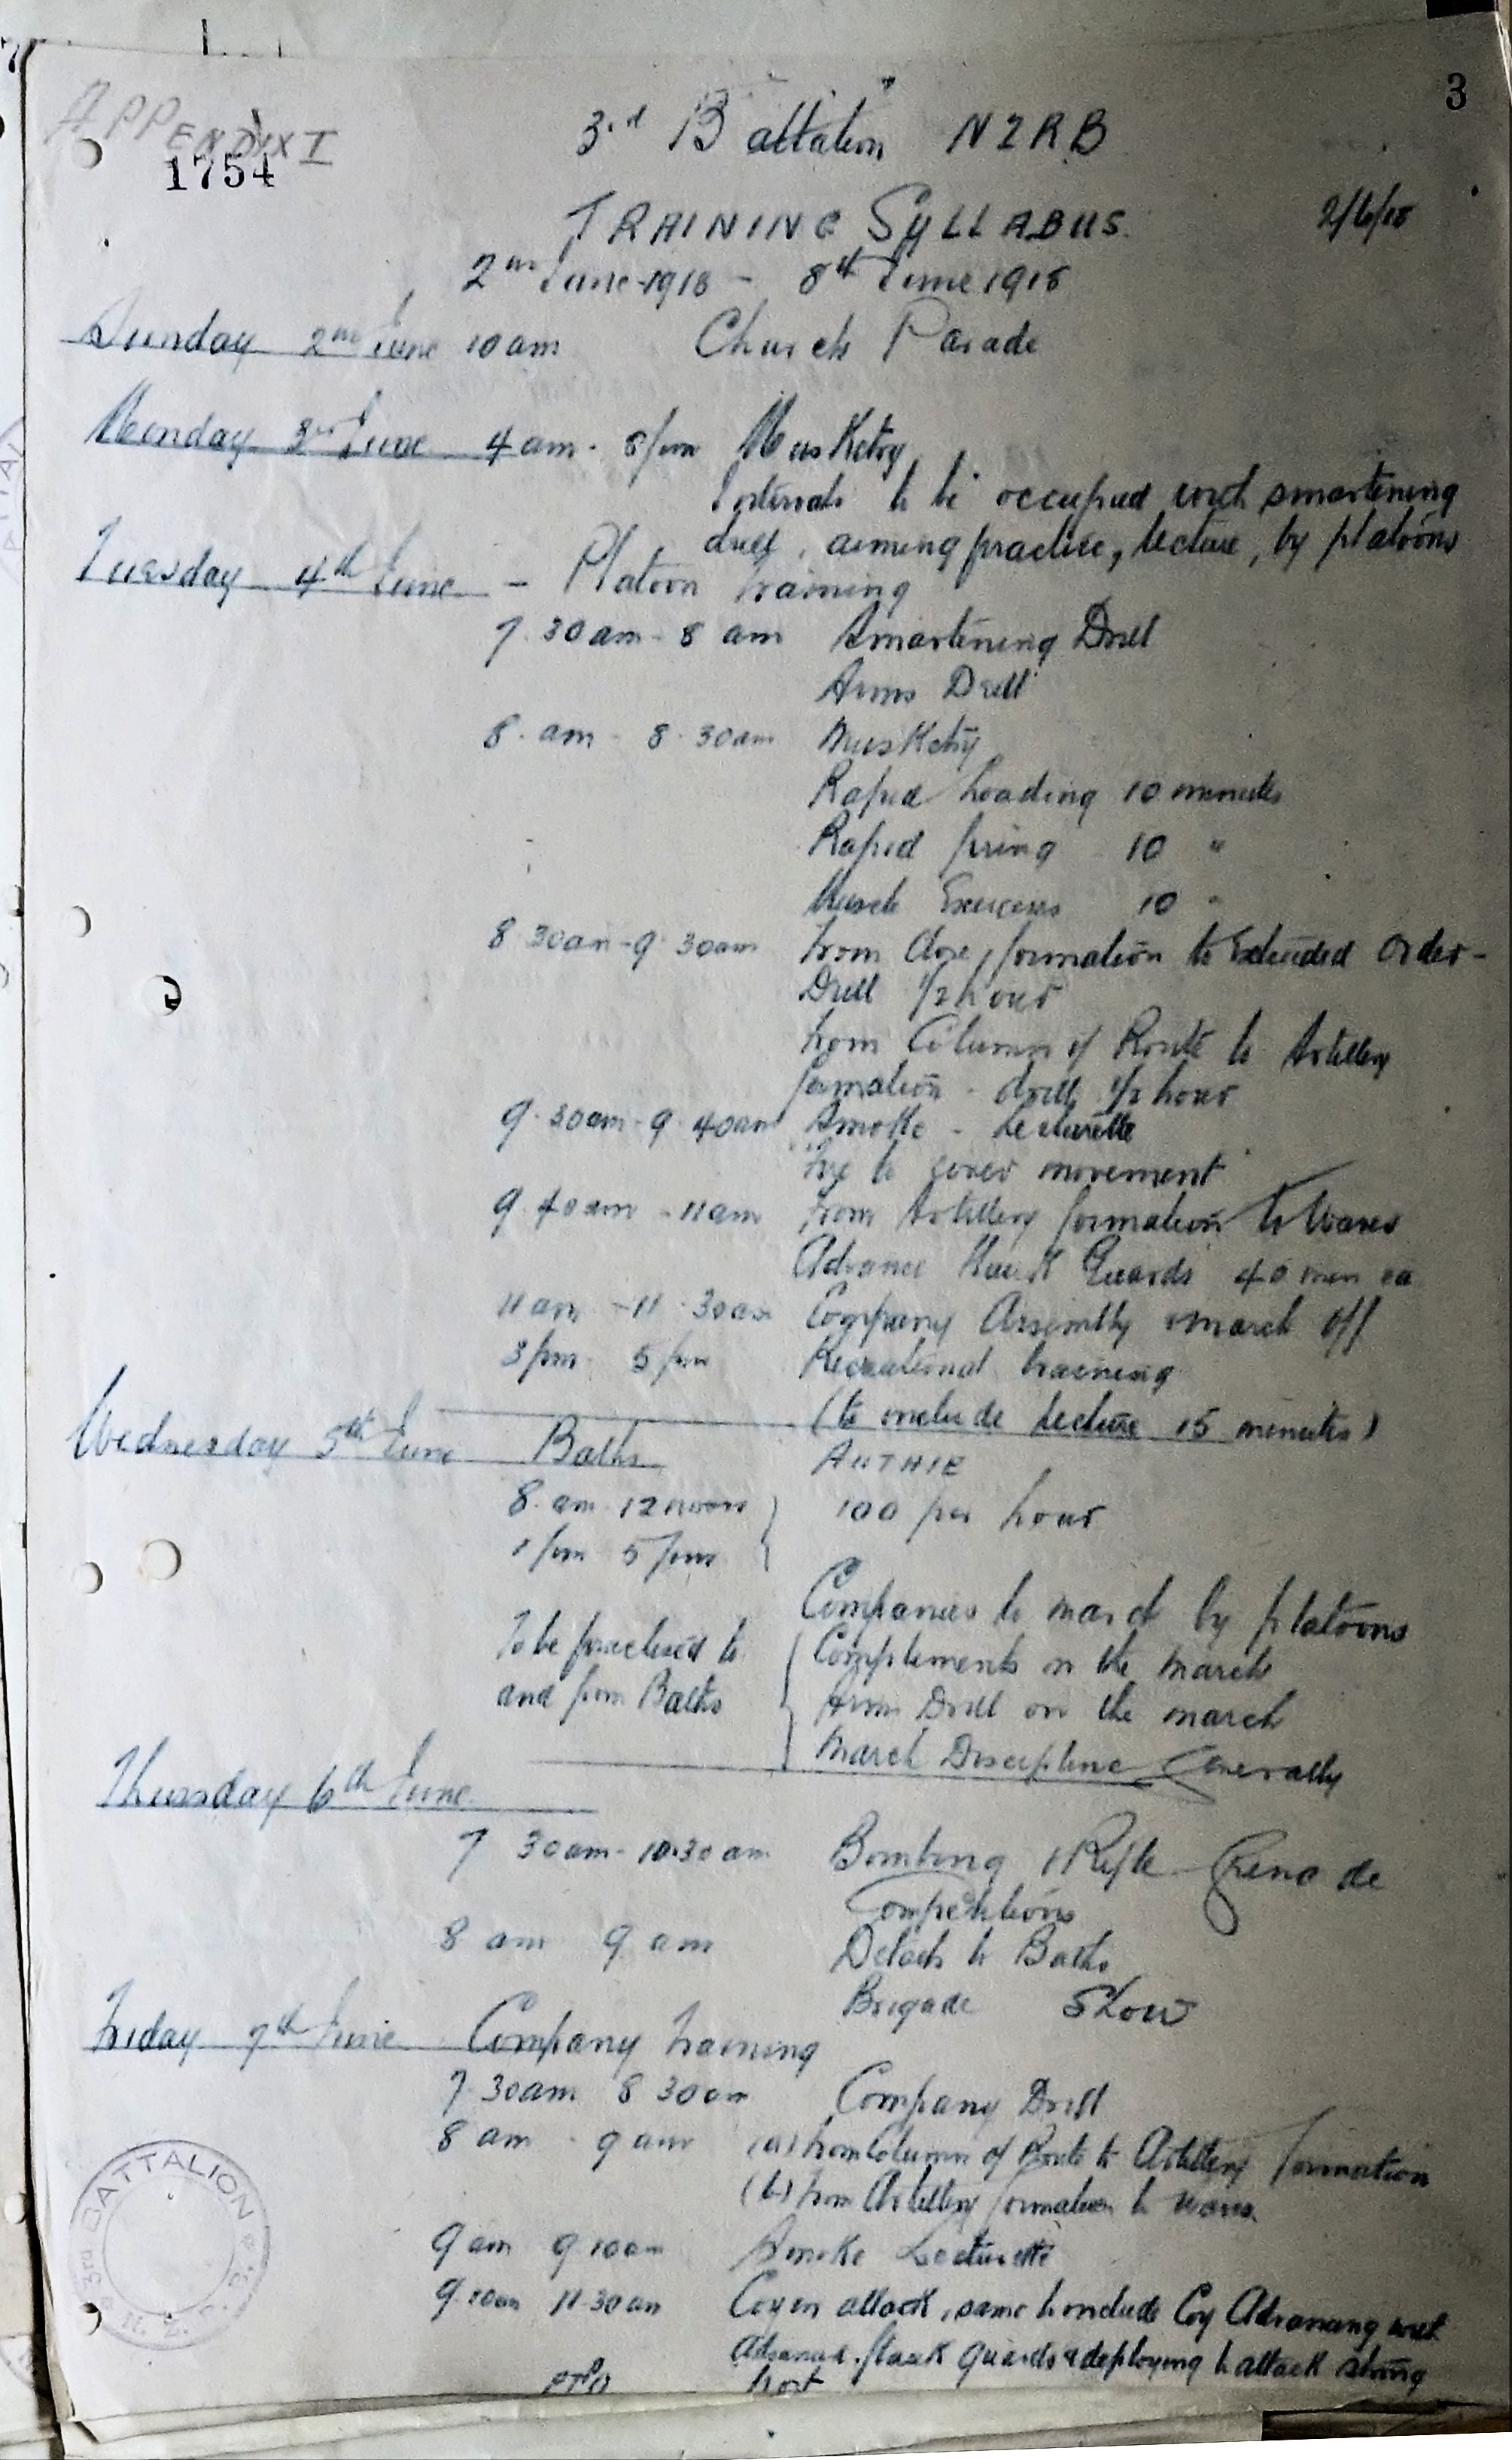 3
APPENDIX I
1754
3rd Battalion NZRB
TRAINING SYLLABUS.
2/6/18
2nd June 1918 - 8th June 1918
Sunday 2nd June 10 am Church Parade
Monday 3rd June 4 am - 8 pm Musketry
Intervals to be occupied with smartening
drill, aiming practice, lecture, by platoons
Tuesday 4th June - Platoon Training
7.30 am - 8 am Smartening Drill
Arms Drill
8. am - 8.30 am Musketry
Rapid Loading 10 minutes
Rapid firing 10 "
Muscle Exercises 10 "
8 30 am - 9 30 am From Close formation to Extended Order -
Drill 1/2 hour
From Column of Route to Artillery
formation - drill 1/2 hour
9.30 am - 9.40 am Smoke - Lecturette
"Fire to cover movement"
9.40 am - 11 am From Artillery formation to Waves
Advance Flank Guards 40 min ea
11 am - 11.30 am Company Assembly & march off
3 pm - 5 pm Recreational training
(to include lecture 15 minutes)
Wednesday 5th June Baths AUTHIE
8. am - 12 noon } 100 per hour
1 pm 5 pm
Companies to march by platoons
To be practised to and from Baths { Complements on the march
Arms Drill on the march
March Discipline Generally
Thursday 6th June
7 30 am - 10.30 am Bombing & Rifle Grenade
Competitions
8 am 9 am Details to Baths
Brigade Show
Friday 7th June Company Training
7.30 am 8 30 am Company Drill
8 am - 9 am (a) From Column of Route to Artillery formation
(b) From Artillery formation to waves.
9 am 9 10 am Smoke Lecturette
9.10 am 11.30 am Coy in attack, same to include Coy Advancing with
advance, flank guards & deploying to attack strong
PTO post
3rd BATTALION N. Z.